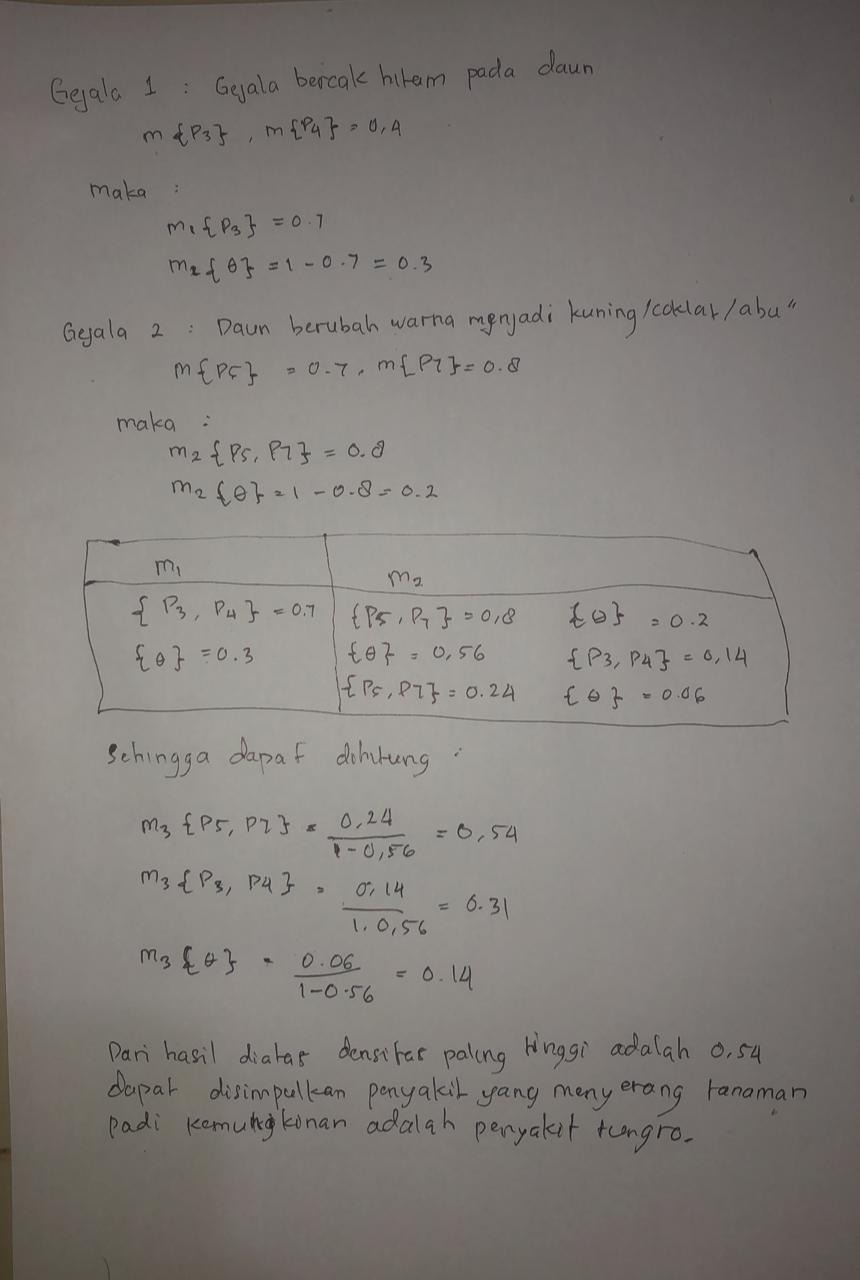 Gejala 1 : Gejala bercak hitam pada daun
m {P3} , m {P4} = 0,4
maka :
m1 {P3} = 0.7
m2 {θ} = 1 - 0.7 = 0.3
Gejala 2 : Daun berubah warna menjadi kuning/coklat/abu"
m {P5} = 0.7, m {P7} = 0.8
maka :
m2 {P5, P7} = 0.8
m2 {θ} = 1 - 0.8 = 0.2
m1 m2
{P3, P4} = 0.7 {P5, P7} = 0,8 {θ} = 0.2
{θ} = 0.3 {θ} = 0,56 {P3, P4} = 0,14
{P5, P7} = 0.24 {θ} = 0.06
Sehingga dapat dihitung :
m3 {P5, P7} = 0,24 / 1-0,56 = 0,54
m3 {P3, P4} = 0,14 / 1. 0,56 = 0.31
m3 {θ} = 0.06 / 1-0.56 = 0.14
Dari hasil diatas densitas paling tinggi adalah 0,54
dapat disimpulkan penyakit yang menyerang tanaman
padi kemungkinan adalah penyakit tungro.